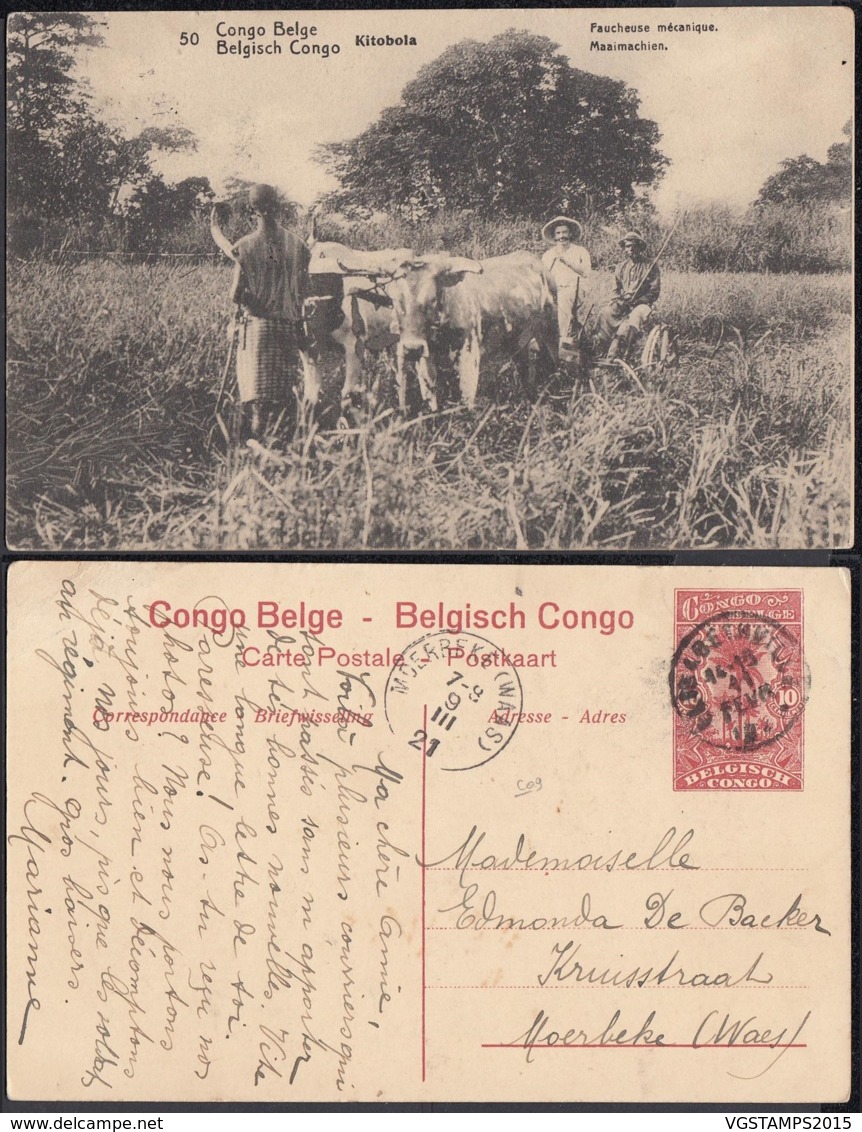 50 Congo Belge
Belgisch Congo
Kitobola
Faucheuse mécanique.
Maaimachien.
Congo Belge - Belgisch Congo
Carte Postale - Postkaart
Correspondance - Briefwisseling
Adresse - Adres
CONGO BELGE
10
BELGISCH CONGO
MOERBEKE (WAES)
7-8
9
III
21
C09
Ma chère Amie,
Voilà plusieurs courriers qui
sont passés sans m'apporter
de tes bonnes nouvelles. Vite
une longue lettre de toi.
Paresseuse! As-tu reçu nos
photos? Nous nous portons
toujours bien et décomptons
déjà nos jours, pis que les soldats
au régiment. Gros baisers.
Marianne
Mademoiselle
Edmonda De Backer
Kruisstraat
Moerbeke (Waes)
VGSTAMPS2015